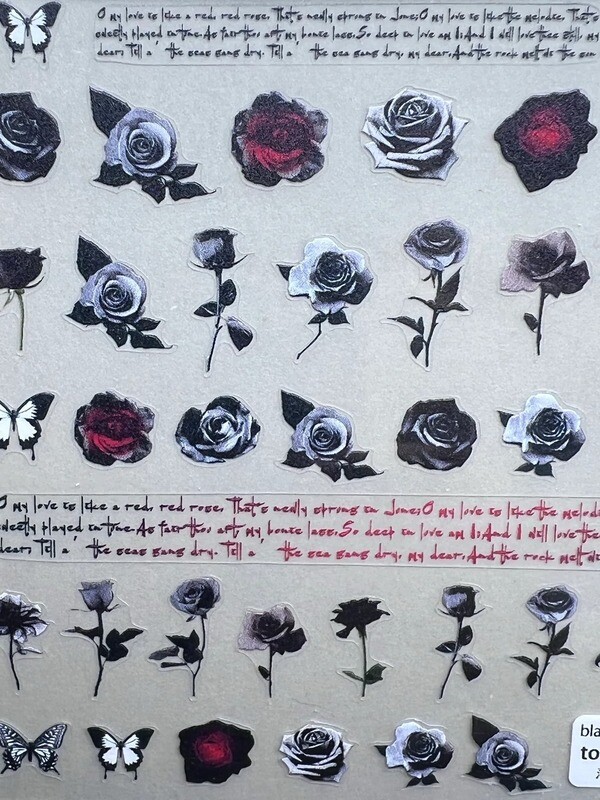 O my love is like a red, red rose, That's newly sprung in June;O my love is like the melodie, That's
sweetly played in tune.As fair thou art, my bonie lass,So deep in love am I;And I will love thee still, my
dear, Till a' the seas gang dry. Till a' the seas gang dry, my dear,And the rock melt di the sun
O my love is like a red, red rose, That's newly sprung in June;O my love is like the melodi
weetly played in tune.As fair thou art, my bonie lass,So deep in love am I;And I will love the
dear, Till a' the seas gang dry. Till a' the sea gang dry, my dear,And the rock melt
bla
to